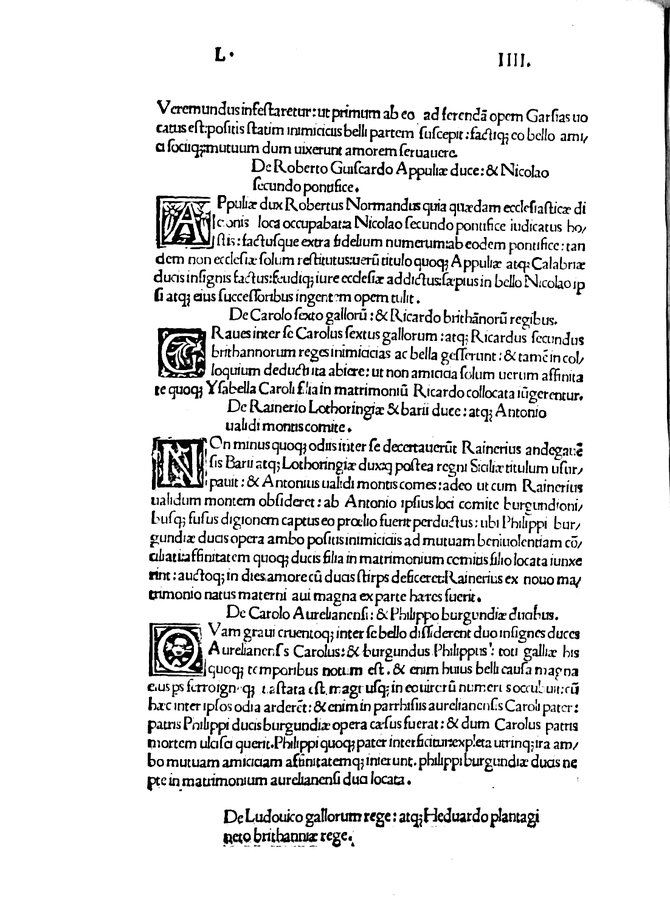 L. IIII.
Veremundus infestaretur: ut primum ab eo ad ferendā opem Garsias uo
catus est: positis statim inimiciciis belli partem suscepit: factiq; eo bello ami/
ci sociiq; mutuum dum uixerunt amorem seruauere.
De Roberto Guiscardo Appuliæ duce: & Nicolao
secundo pontifice.
APpuliæ dux Robertus Normandus quia quædam ecclesiasticæ di
loca occupabat: a Nicolao secundo pontifice iudicatus ho/
stis: factusque extra fidelium numerum: ab eodem pontifice: tan
dem non ecclesiæ solum restitutus: uerū titulo quoq; Appuliæ atq; Calabriæ
ducis insignis factus: feudiq; iure ecclesiæ addictus: sæpius in bello Nicolao ip
si atq; eius successoribus ingentem opem tulit.
De Carolo sexto gallorū: & Ricardo brithānorū regibus.
GRaues inter se Carolus sextus gallorum: atq; Ricardus secundus
brithannorum reges inimicicias ac bella gesserunt: & tamē in col/
loquium deducti ita abiere: ut non amicicia solum uerum affinita
te quoq; Ysabella Caroli filia in matrimoniū Ricardo collocata iūgerentur.
De Rainerio Lothoringiæ & barii duce: atq; Antonio
ualidi montis comite.
NOn minus quoq; odiis inter se decertauerūt Rainerius andegauē
sis Barii atq; Lothoringiæ dux: q postea regni Siciliæ titulum usur/
pauit: & Antonius ualidi montis comes: adeo ut cum Rainerius
ualidum montem obsideret: ab Antonio ipsius loci comite burgundioni/
busq; fusus digionem captus eo prœlio fuerit perductus: ubi Philippi bur/
gundiæ ducis opera ambo positis inimiciciis ad mutuam beniuolentiam cō/
ciliati: affinitatem quoq; ducis filia in matrimonium comitis filio locata iunxe
rint: auctoq; in dies amore cū ducis stirps deficeret: Rainerius ex nouo ma/
trimonio natus materni aui magna ex parte hæres fuerit.
De Carolo Aurelianensi: & Philippo burgundiæ ducibus.
QVam graui cruentoq; inter se bello dissiderent duo insignes duces
Aurelianensis Carolus: & burgundus Philippus: toti galliæ his
quoq; temporibus notum est. & enim huius belli causa magna
eius uastata est. magnusq; in eo uirorū numerus occubuit: cū
hæc inter ipsos odia arderēt: & enim in parrhisiis aurelianensis Caroli pater:
patris Philippi ducis burgundiæ opera cæsus fuerat: & dum Carolus patris
mortem ulcisci querit. Philippi quoq; pater interficitur: expleta utrinq; ira am/
bo mutuam amiciciam affinitatemq; inierunt. philippi burgundiæ ducis ne
pte in matrimonium aurelianensi duci locata.
De Ludouico gallorum rege: atq; Heduardo plantagi
neto brithanniæ rege.